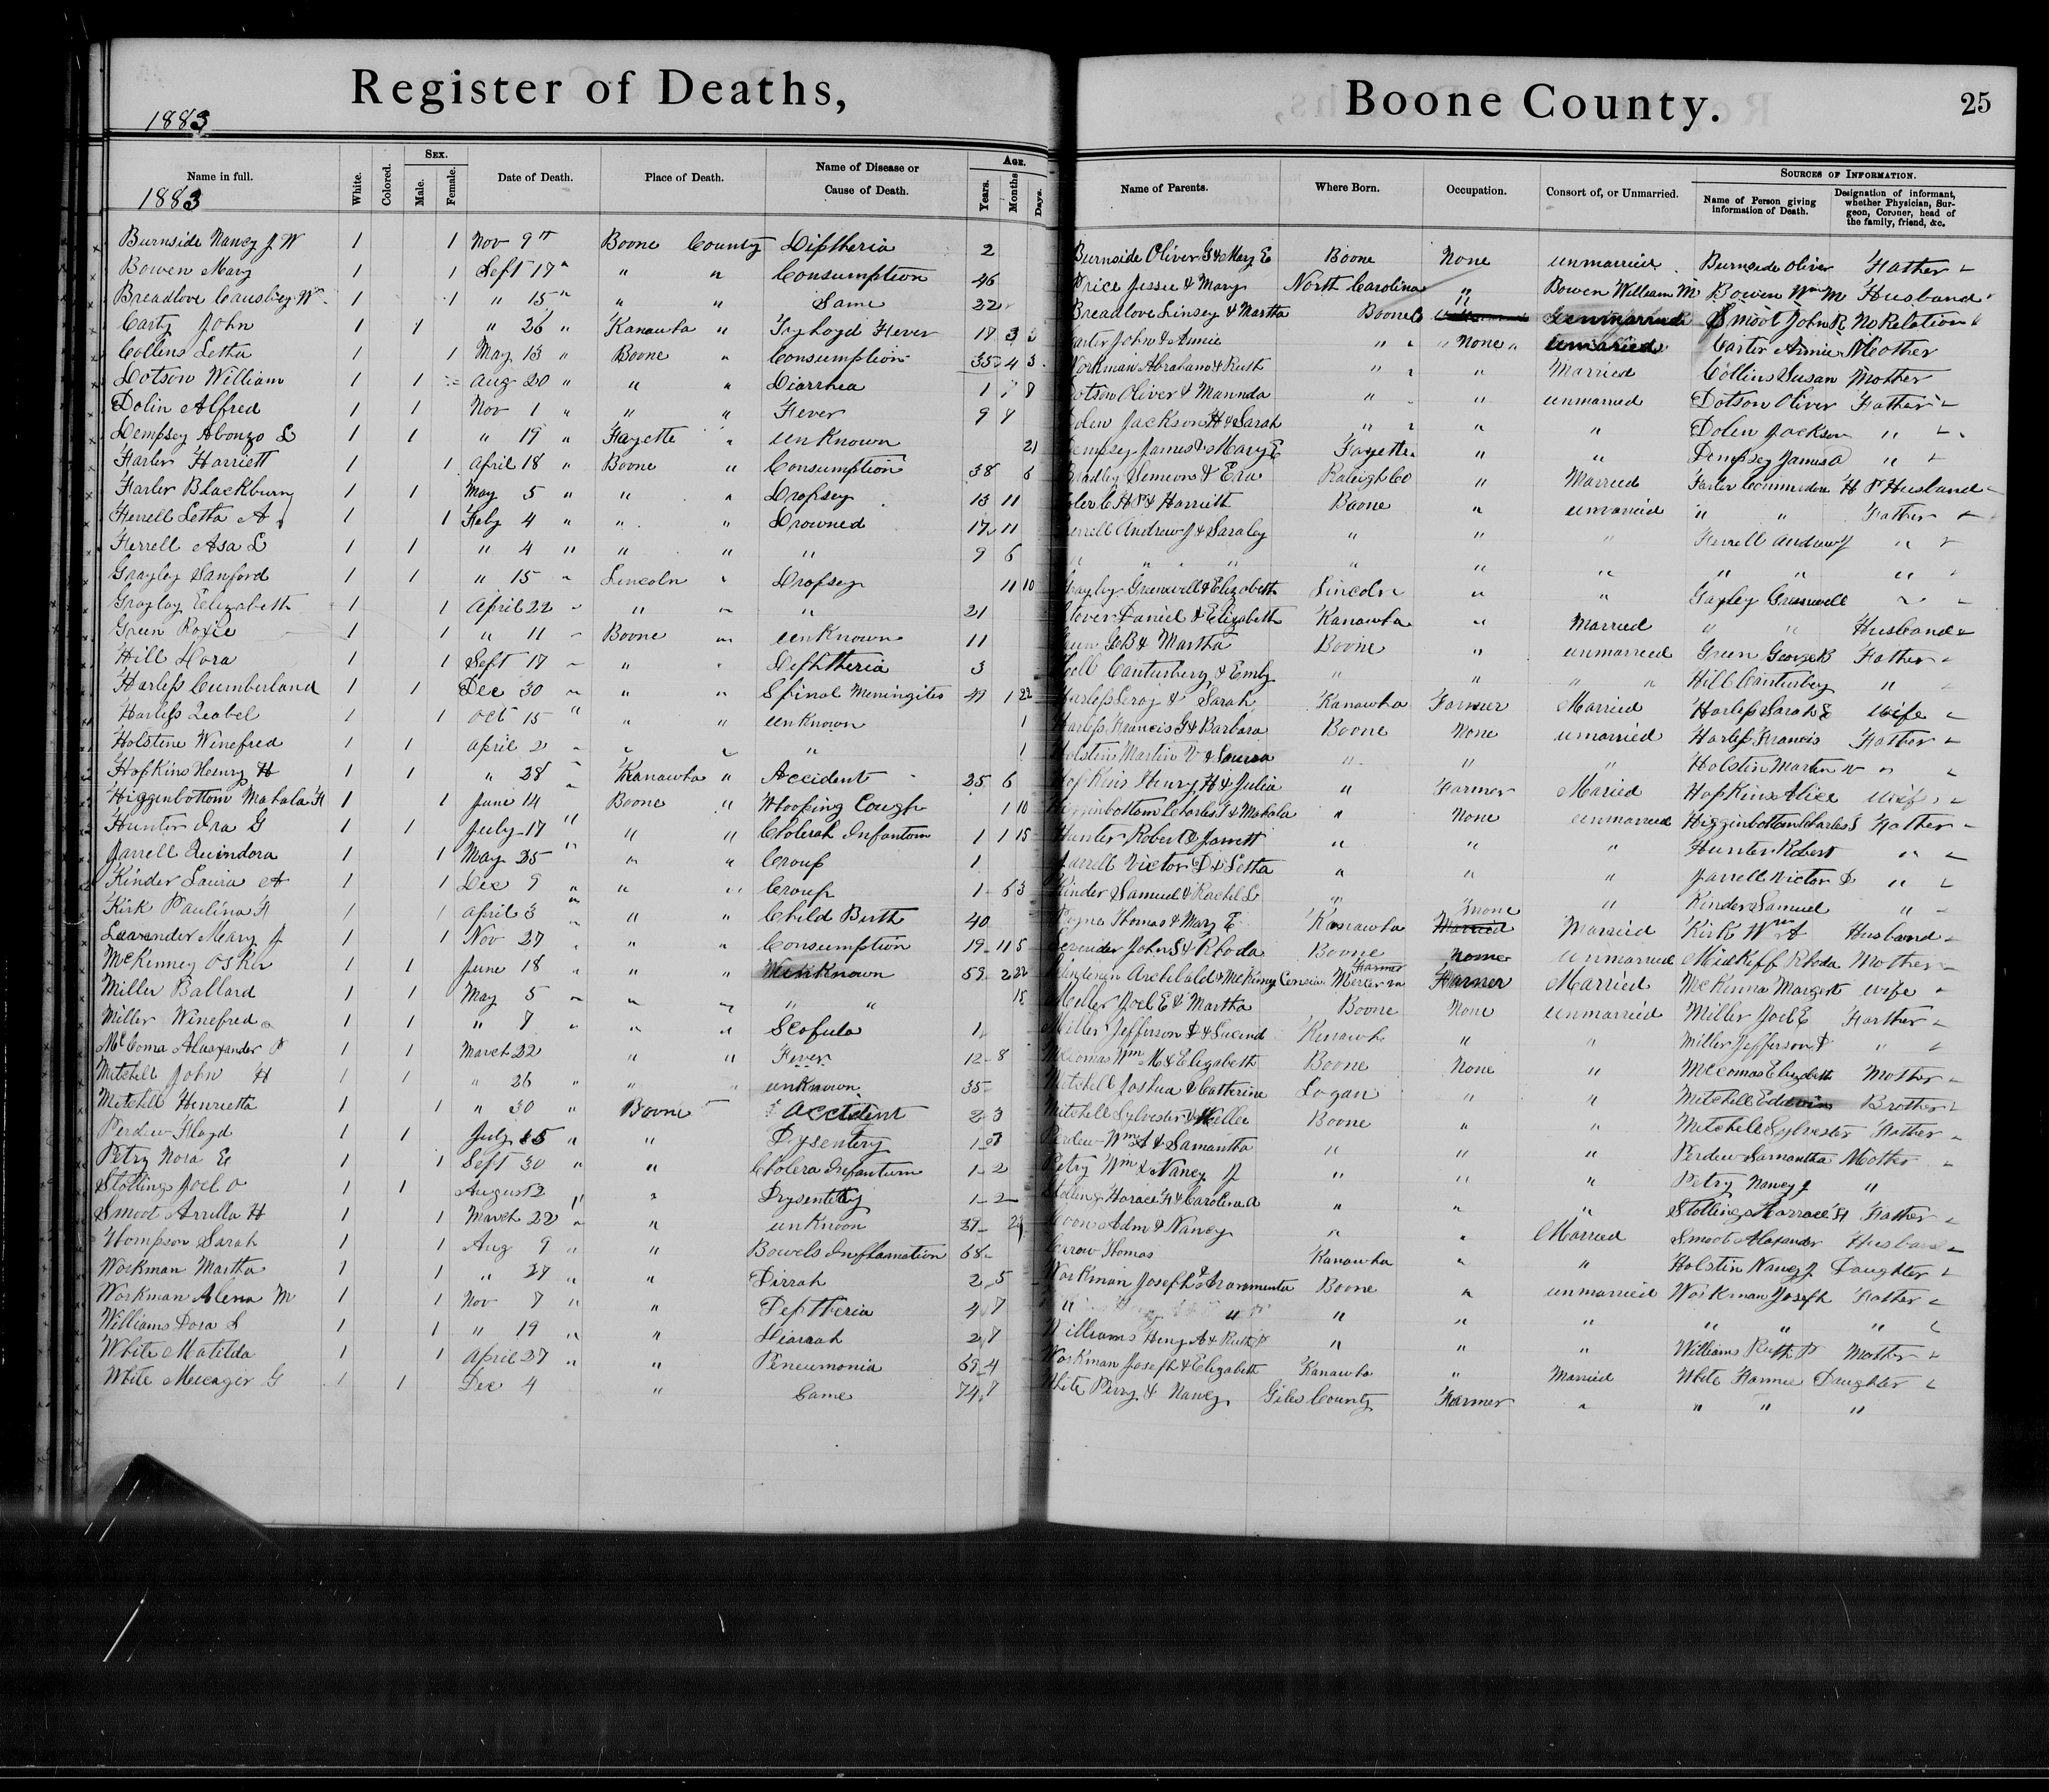 Register of Deaths, Boone County. 25
1883
Name in full. White. Colored. Sex. Male. Female. Date of Death. Place of Death. Name of Disease or Cause of Death. Age. Years. Months. Days. Name of Parents. Where Born. Occupation. Consort of, or Unmarried. Sources of Information. Name of Person giving information of Death. Designation of informant, whether Physician, Surgeon, Coroner, head of the family, friend, &c.
1883
Burnside Nancy J W 1 1 Nov 9 " Boone County Diptheria 2 Burnside Oliver G & Mary E Boone None unmarried Burnside Oliver Father
Bowen Mary 1 1 Sept 17 " " " Consumption 46 Price Jessee & Mary North Carolina " Bowen William M Bowen Wm M Husband
Breadlove Causbey W 1 1 " 15 " " " Same 22 Breadlove Linsey & Martha Boone Co " unmarried Smoot John R No Relation
Carty John 1 1 " 26 " Kanawha " Tyhoyd Fever 17 3 Carter John & Annie " " None unmaried Carter Annie Mother
Collins Letha 1 1 May 13 " Boone " Consumption 35 4 3 Workman Abraham & Ruth " " " Married Collins Susan Mother
Dotson William 1 1 Aug 20 " " " Diarrhea 1 8 Dotson Oliver & Mannda " " unmarried Dotson Oliver Father
Dolin Alfred 1 1 Nov 1 " " " Fever 9 Dolen Jackson H & Sarah " " " " Dolen Jackson "
Dempsey Alonzo L 1 1 " 19 " Fayette " unKnown 21 Dempsey James & Mary E Fayette " " Dempsey James A "
Farler Harriett 1 1 April 18 " Boone " Consumption 38 6 Bradley Simeon & Eva Raleigh Co " Married Farler Commodore H P Husband
Farler Blackburn 1 1 May 5 " " " Dropsey 13 11 C H P & Harrieth Boone " unmaried " " Father
Ferrell Letha A 1 1 Feby 4 " " " Drowned 17 11 Ferrell Andrew J & Saraley " " " Ferrell Andrew J "
Ferrell Asa L 1 1 " 4 " " " " 9 6 " " " " " " " " " "
Grayley Sanford 1 1 " 15 " Lincoln " Dropsey 11 10 Grayley Greenwell & Elizabeth Lincoln " " Gayley Greenwell "
Grayley Elizabeth 1 1 April 22 " " " " 21 Stover Daniel & Elizabeth Kanawha " Married " " Husband
Green Roxie 1 1 " 11 " Boone " unKnown 11 Green G B & Martha Boone " unmarried Green George B Father
Hill Dora 1 1 Sept 17 " " " Dephtheria 3 Hill Canturberry & Emly " " " " Hill Canturbey "
Harless Cumberland 1 1 Dec 30 " " " Spinal Meningites 49 1 22 Harless Leroy & Sarah Kanawha Farmer Married Harless Sarah E Wife
Harless Izabel 1 1 Oct 15 " " " unKnown 1 Harless Francis G & Barbara Boone None unmaried Harless Francis Father
Holstine Winefred 1 1 April 2 " " " " 1 Holstin Martin V & Sousan " " " Holstin Marten V "
Hopkins Henry H 1 1 " 28 " Kanawha " Accident 25 6 Hopkins Henry H & Julia " Farmer Maried Hopkins Alice Wife
Higginbottom Mahala H 1 1 June 14 Boone " Whooping Cough 1 10 Higginbottom Charles S & Mahala " None unmarried Higginbottom Charles S Father
Hunter Ira G 1 1 July 17 " " " Cholerah Infantom 1 1 15 Hunter Robert & Jarrett " " " Hunter Robert "
Jarrell Quindora 1 1 May 25 " " " Croup 1 Jarrell Victor D & Letha " " " Jarrell Victor D "
Kinder Laura A 1 1 Dec 9 " " " Croup 1 6 3 Kinder Samuel & Rachel L " none " Kinder Samuel "
Kirk Paulina H 1 1 April 3 " " " Child Birth 40 Payne Thomas & Mary E Kanawha Married Married Kirk Wm A Husband
Lavender Mary J 1 1 Nov 27 " " " Consumption 19 11 5 Lavender John S & Rhoda Boone none unmarried Midkiff Rhoda Mother
McKinney Osker 1 1 June 18 " " " unKnown 59 2 22 Archibald & McKinney Mercer va Farmer Farmer Married McKinna Margert wife
Miller Ballard 1 1 May 5 " " " " " 15 Miller Joel E & Martha Boone None unmarried Miller Joel E Farther
Miller Winefred 1 1 " 7 " " " Scofula 1 Miller Jefferson D & Lucind Kinawh " " Miller Jefferson D "
McComa Alaaxander P 1 1 March 22 " " Fever 12 8 McComas Wm M & Elizabeth Boone None " McComas Elizabeth Mother
Mitshell John H 1 1 " 26 " " " unknown 35 Mitchell Joshua & Catherine Logan " " Mitchell Edwin Brother
Mitchell Henrietta 1 1 " 30 " Boone Accident 2 3 Mitchell Sylvester & Millie Boone " " Mitchell Sylvester Father
Perdew Floyd 1 1 July 15 " " Dysentery 1 3 Perdew Wm A & Samantha " " " Perdew Samantha Mother
Petry Nora E 1 1 Sept 30 " " Cholera Infantum 1 2 Petry Wm & Nancy J " " " Petry Nancy J "
Stollings Joel O 1 1 August 2 " " Dysentery 1 2 Stolling Horace H & Carolina A " " " Stolling Horrace H Father
Smoot Arrilla H 1 1 March 22 " " unKnoon 27 Coon Adm & Nancy " " Married Smoot Alexander Husband
Thompson Sarah 1 1 Aug 9 " " Bowels Inflamation 68 Thomas Kanawha " " Holstin Nancy J Daughter
Workman Martha 1 " 27 " " Dirrah 2 5 Workman Joseph & Araminta Boone " unmarried Workman Joseph Father
Workman Alena M 1 1 Nov 7 " " Deptheria 4 7 " " " " " " " " "
Williams Dora S 1 1 " 19 " " Diarrah 2 7 Williams Henry A & Ruth P " " " Williams Ruth P Mother
White Matilda 1 1 April 27 " " Peneumonia 69 4 Workman Joseph & Elizabeth Kanawha " Married White Fannie Daughter
White Mecager G 1 1 Dec 4 " Same 74 7 White Perry & Nancy Giles County Farmer " " " "